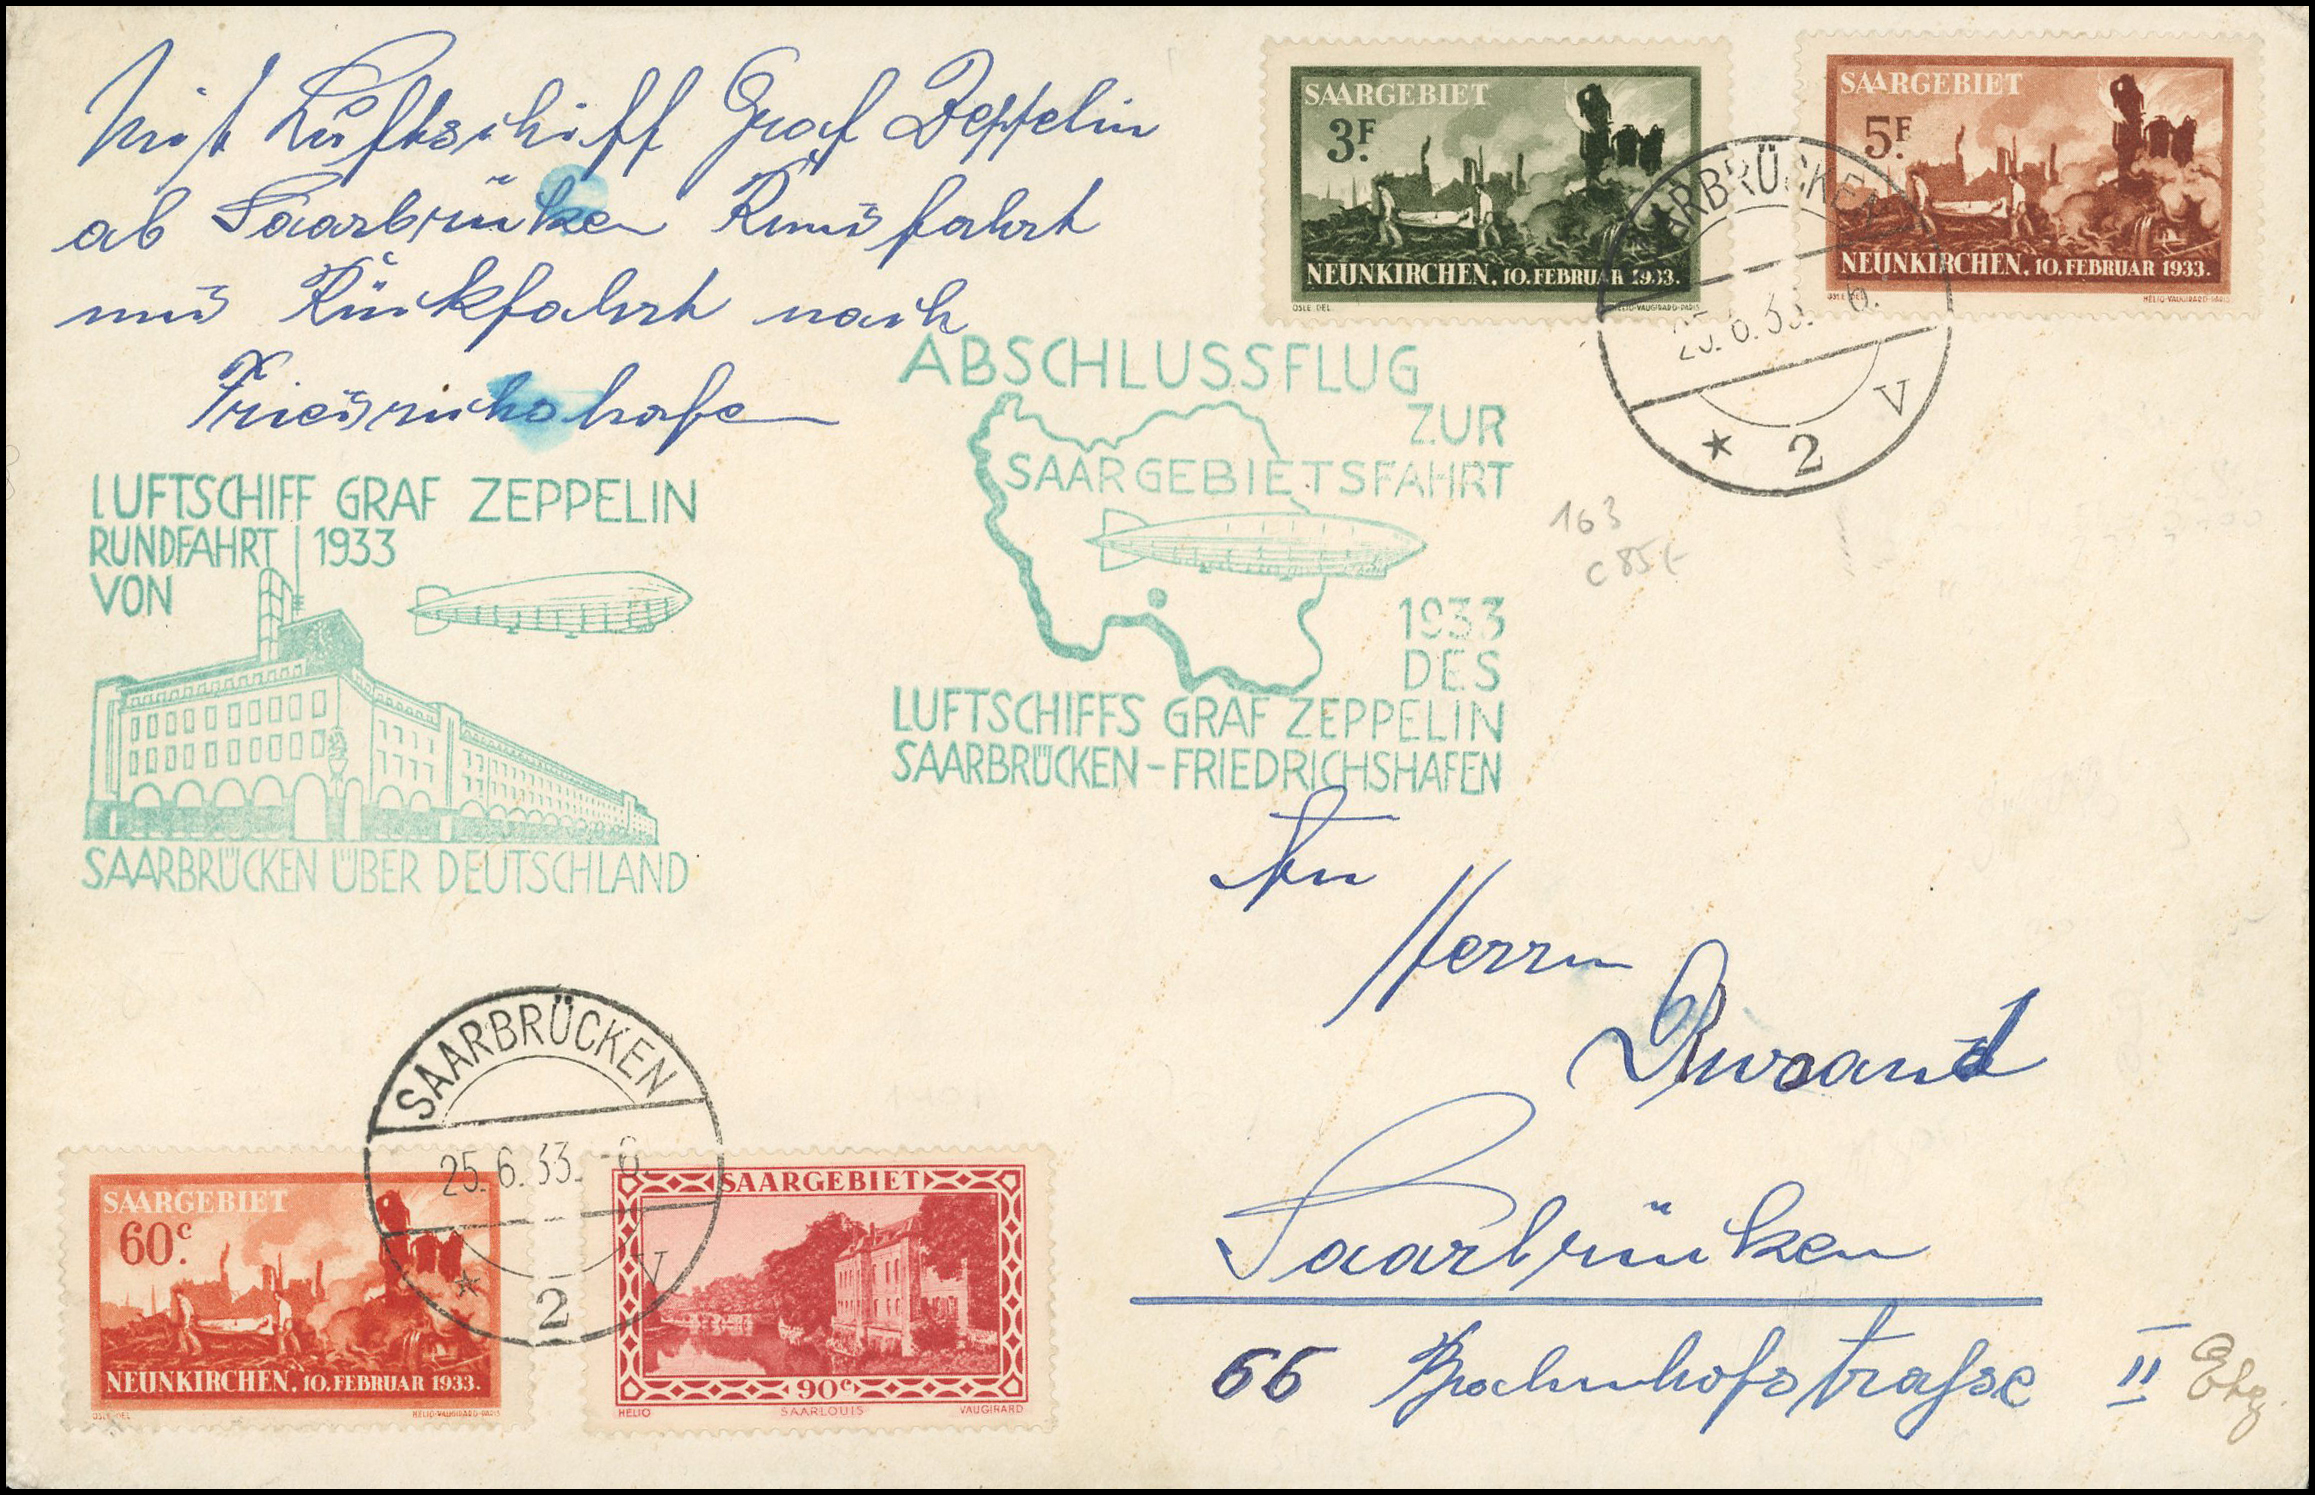 Mit Luftschiff Graf Zeppelin
ab Saarbrücken Rundfahrt
und Rückfahrt nach
Friedrichshafen
SAARGEBIET
3F.
NEUNKIRCHEN. 10. FEBRUAR 1933.
OSLE DEL.
HELIO-VAUGIRARD-PARIS
SAARGEBIET
5F.
NEUNKIRCHEN. 10. FEBRUAR 1933.
OSLE DEL.
HELIO-VAUGIRARD-PARIS
SAARBRÜCKEN
25.6.33. 6.
* 2 V
ABSCHLUSSFLUG
ZUR
SAARGEBIETSFAHRT
1933
DES
LUFTSCHIFFS GRAF ZEPPELIN
SAARBRÜCKEN-FRIEDRICHSHAFEN
163
C 85,-
LUFTSCHIFF GRAF ZEPPELIN
RUNDFAHRT 1933
VON
SAARBRÜCKEN ÜBER DEUTSCHLAND
An
Herrn
Saarbrücken
66 Bahnhofstrasse II
SAARBRÜCKEN
25.6.33.-6.
* 2 V
SAARGEBIET
60c.
NEUNKIRCHEN. 10. FEBRUAR 1933.
OSLE DEL
HELIO-VAUGIRARD-PARIS
SAARGEBIET
90c
HELIO SAARLOUIS VAUGIRARD